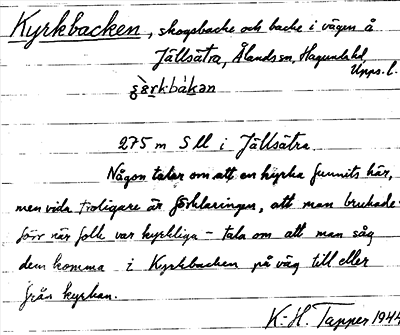 Kyrkbacken, skogsbacke och backe i vägen å
Jällsätra, Ålands sn, Hagunda hd,
Upps. l.
275 m S ll i Jällsätra.
Någon talar om att en kyrka funnits här,
men vida troligare är förklaringen, att man brukade -
förr när folk var kyrkliga - tala om att man såg
dem komma i Kyrkbacken på väg till eller
från kyrkan.
K.-H. Tapper 1944